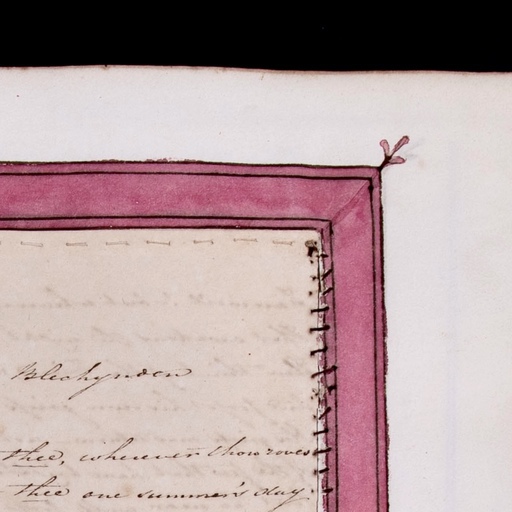 Blechynden
thee, wherever thou roves
thee one summer's day.